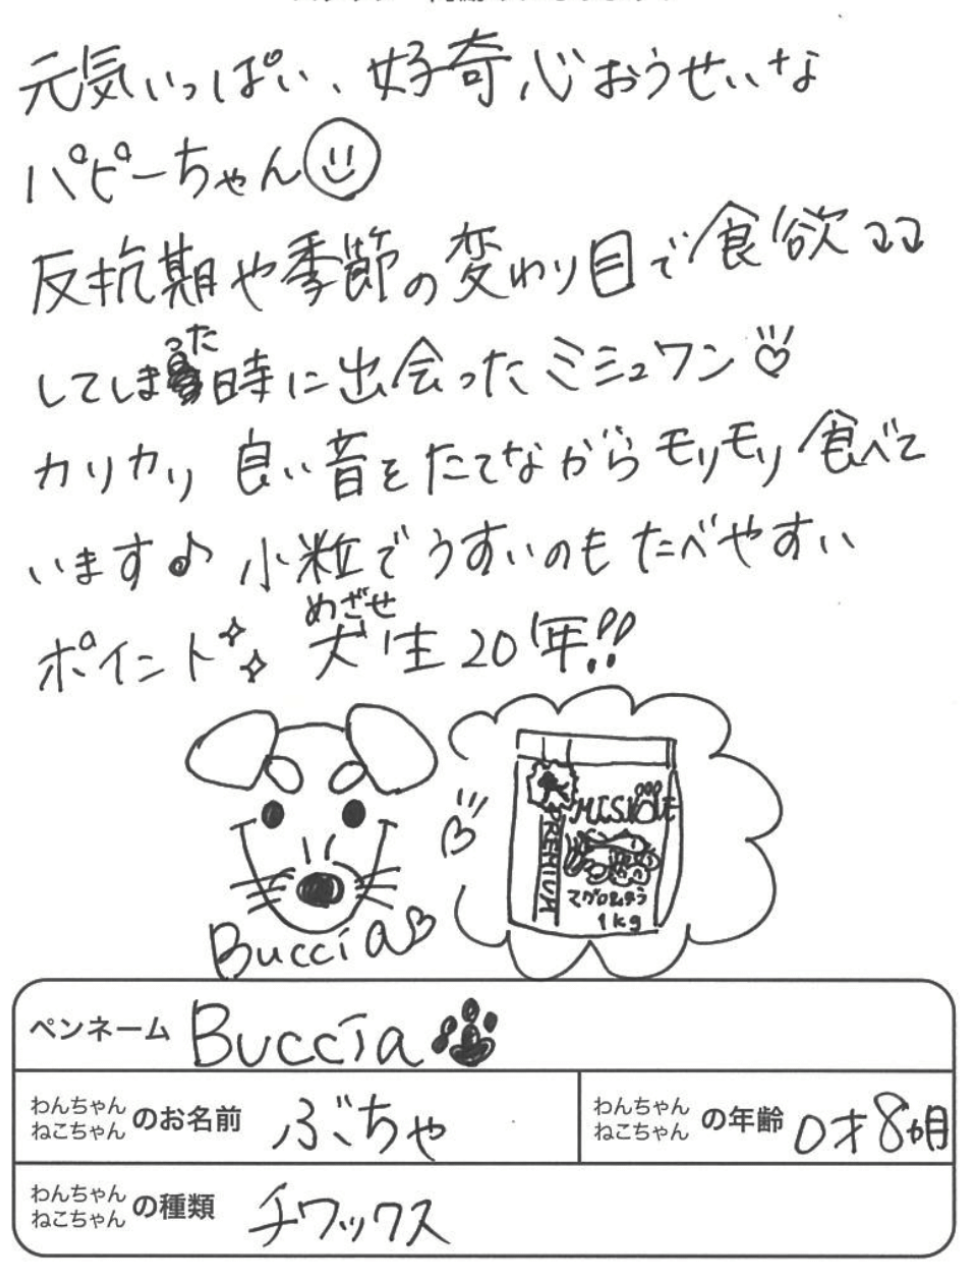 元気いっぱい、好奇心おうせいな
パピーちゃん
反抗期や季節の変わり目で食欲⤵⤵
してしまった時に出会ったミシュワン♡
カリカリ 良い音をたてながらモリモリ食べて
います♪ 小粒でうすいのもたべやすい
ポイント✧ めざせ犬生20年!!
PREMIUM
1kg
Buccia♡
ペンネーム Buccia
わんちゃん ねこちゃん のお名前 ぶちゃ
わんちゃん ねこちゃん の年齢 0才8ヵ月
わんちゃん ねこちゃん の種類 チワックス